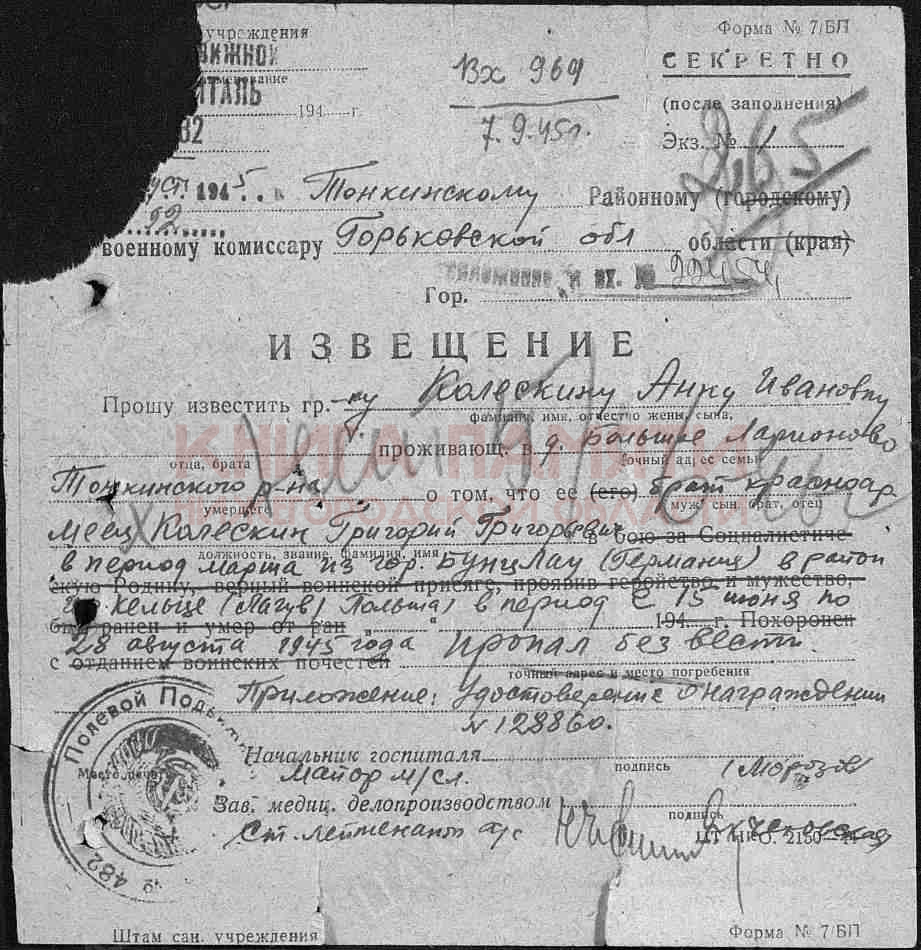 Форма № 7/БП
учреждения
ВИЖНОЙ
наименование
ИТАЛЬ
194 г.
82
Вх 969
7.9.45г.
СЕКРЕТНО
(после заполнения)
Экз. № 1
1945 . . к Тонкинскому Районному (городскому)
военному комиссару Горьковской обл области (края)
и вх. №
Гор.
ИЗВЕЩЕНИЕ
Прошу известить гр.-ку Колескину Анну Ивановну
фамилия, имя, отчество жены, сына,
проживающ. в д. большое Ларионово
отца, брата
точный адрес семьи
Тонкинского р-на о том, что ее (его) брат красноар
умершего
муж, сын, брат, отец
меец Колескин Григорий Григорьевич в бою за Социалистиче-
должность, звание, фамилия, имя
в период марша из гор. Бунцлау (Германия) в район
скую Родину, верный воинской присяге, проявив геройство и мужество,
Кельце (Лагув, Польша) в период с 15 июня по
был ранен и умер от ран " " 194 г. Похоронен
28 августа 1945 года Пропал без вести.
с отданием воинских почестей
точный адрес и место погребения
Приложение: Удостоверение о награждении
№ 128860.
Полевой Подв
№ 482
Место печати
Начальник госпиталя
Майор м/сл.
подпись
(Морозов
Зав. медиц. делопроизводством
Ст. лейтенант а/с
подпись
2150
Штам сан. учреждения
Форма № 7/БП
КНИГА ПАМЯТИ
НИЖЕГОРОДСКОЙ ОБЛАСТИ